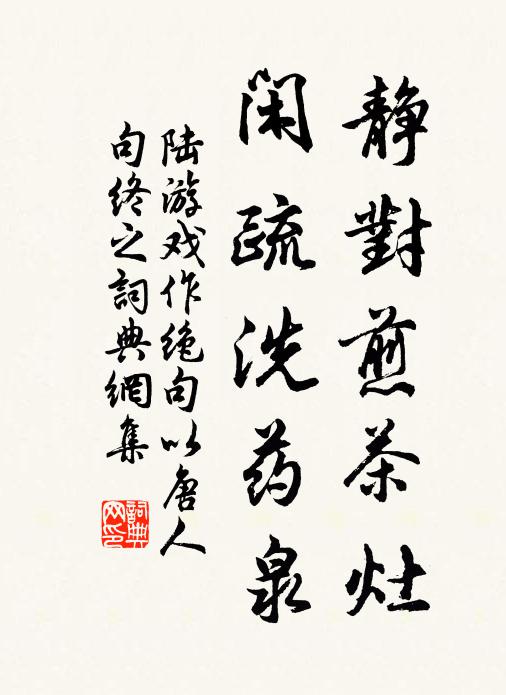 静對煎茶灶
閑疏洗药泉
陆游戏作绝句以唐人
句终之詞典網集
詞典网印